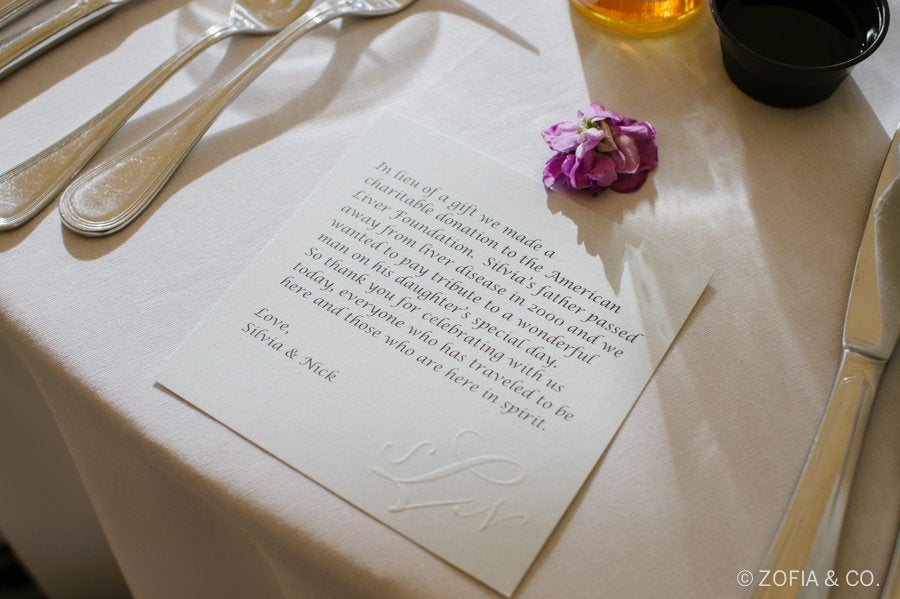 In lieu of a gift we made a
charitable donation to the American
Liver Foundation. Silvia's father passed
away from liver disease in 2000 and we
wanted to pay tribute to a wonderful
man on his daughter's special day.
So thank you for celebrating with us
today, everyone who has traveled to be
here and those who are here in spirit.
Love,
Silvia & Nick
S L N
© ZOFIA & CO.